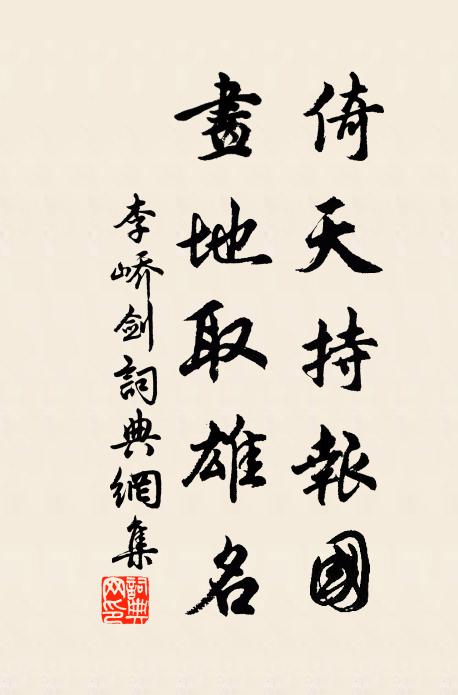 倚天持報國
畫地取雄名
李嶠劍詞典網集
詞典網印